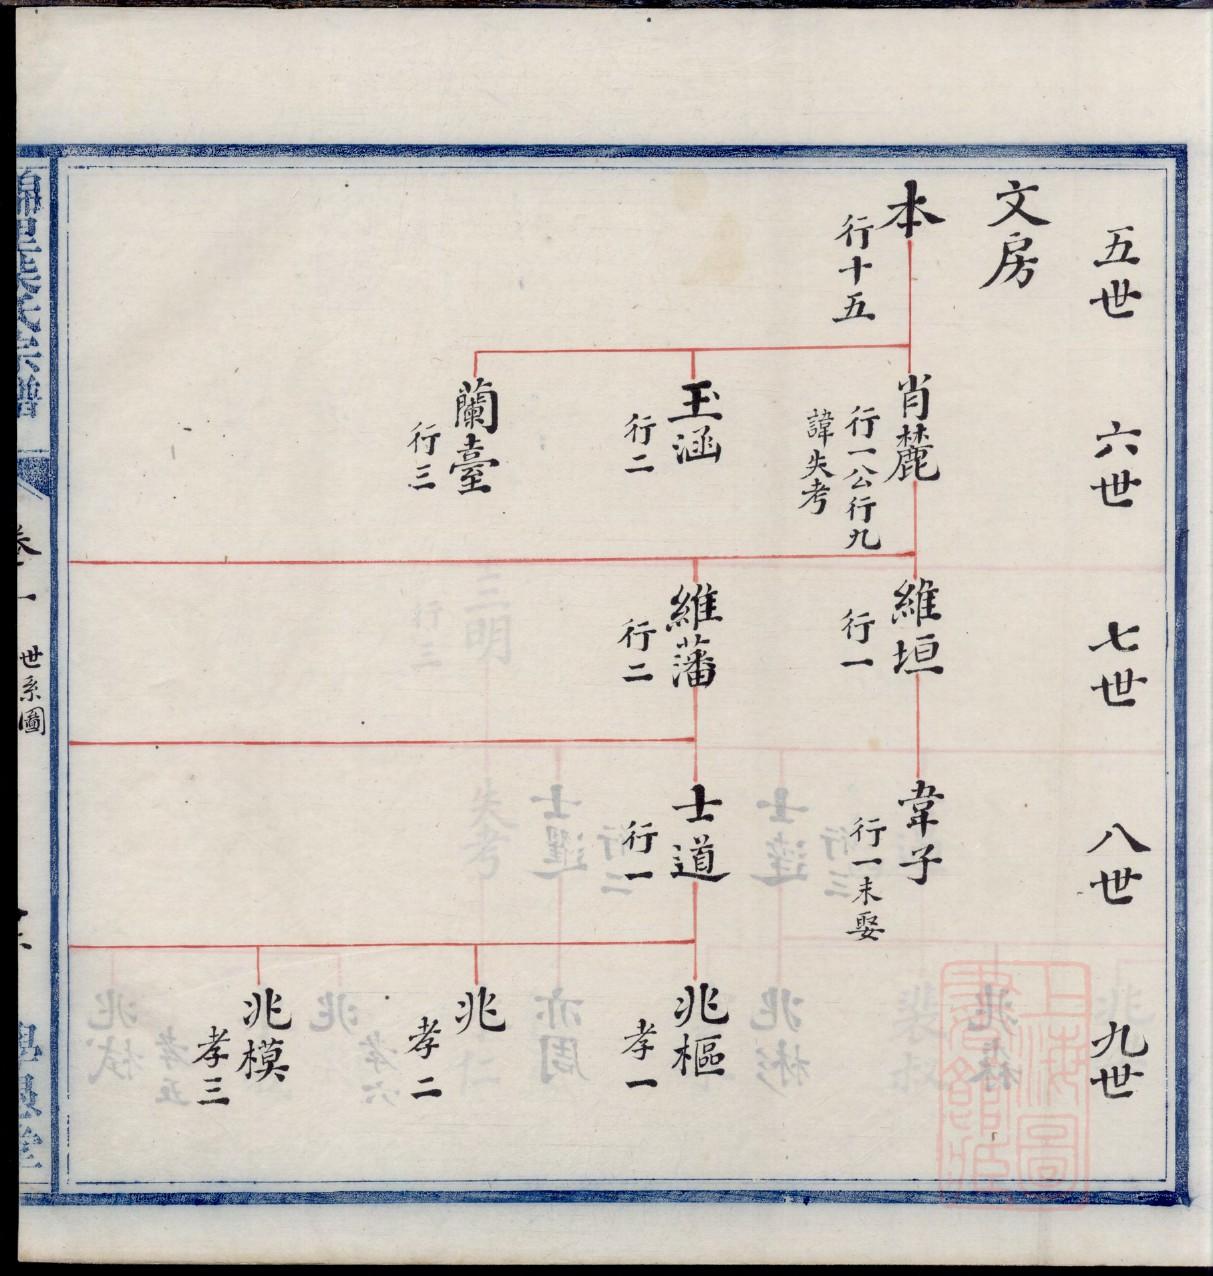 五世
六世
七世
八世
九世
文房
本
行十五
肖麓
行一公行九
諱失考
玉涵
行二
蘭臺
行三
維垣
行一
維藩
行二
韋子
行一未娶
士道
行一
兆樞
孝一
兆
孝二
兆模
孝三
氏宗譜
卷一
世系圖
上海圖